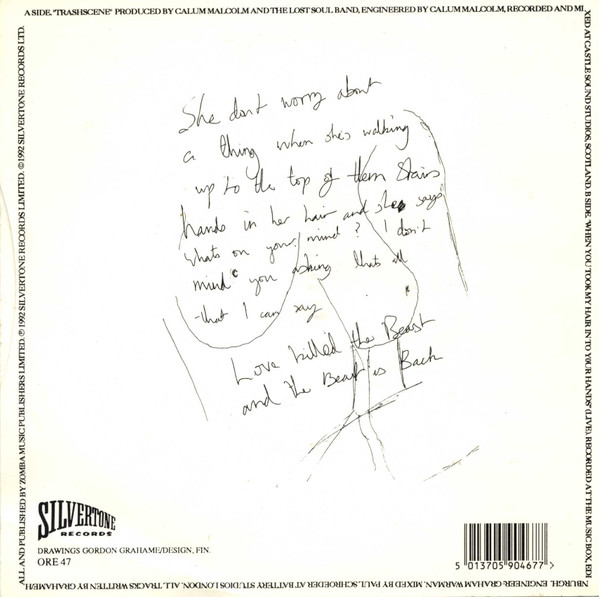 A SIDE. "TRASHSCENE" PRODUCED BY CALUM MALCOLM AND THE LOST SOUL BAND, ENGINEERED BY CALUM MALCOLM, RECORDED AND MI
XED AT CASTLE SOUND STUDIOS, SCOTLAND. B SIDE. WHEN YOU TOOK MY HAIR IN TO YOUR HANDS" (LIVE). RECORDED AT THE MUSIC BOX, EDI
NBURGH, ENGINEER: GRAHAM WARMAN. MIXED BY PAUL SCHROEDER AT BATTERY STUDIOS LONDON. ALL TRACKS WRITTEN BY GRAHAME/H
ALL AND PUBLISHED BY ZOMBA MUSIC PUBLISHERS LIMITED. ℗ 1992 SILVERTONE RECORDS LIMITED. © 1992 SILVERTONE RECORDS LTD.
She dont worry about
a thing when she's walking
up to the top of them stairs
hands in her hair and she says
whats on your mind? I don't
mind you asking thats all
that I can say
Love killed the Beast
and the Beast is Back
SILVERTONE
RECORDS
DRAWINGS GORDON GRAHAME/DESIGN, FIN.
ORE 47
5 013705 904677